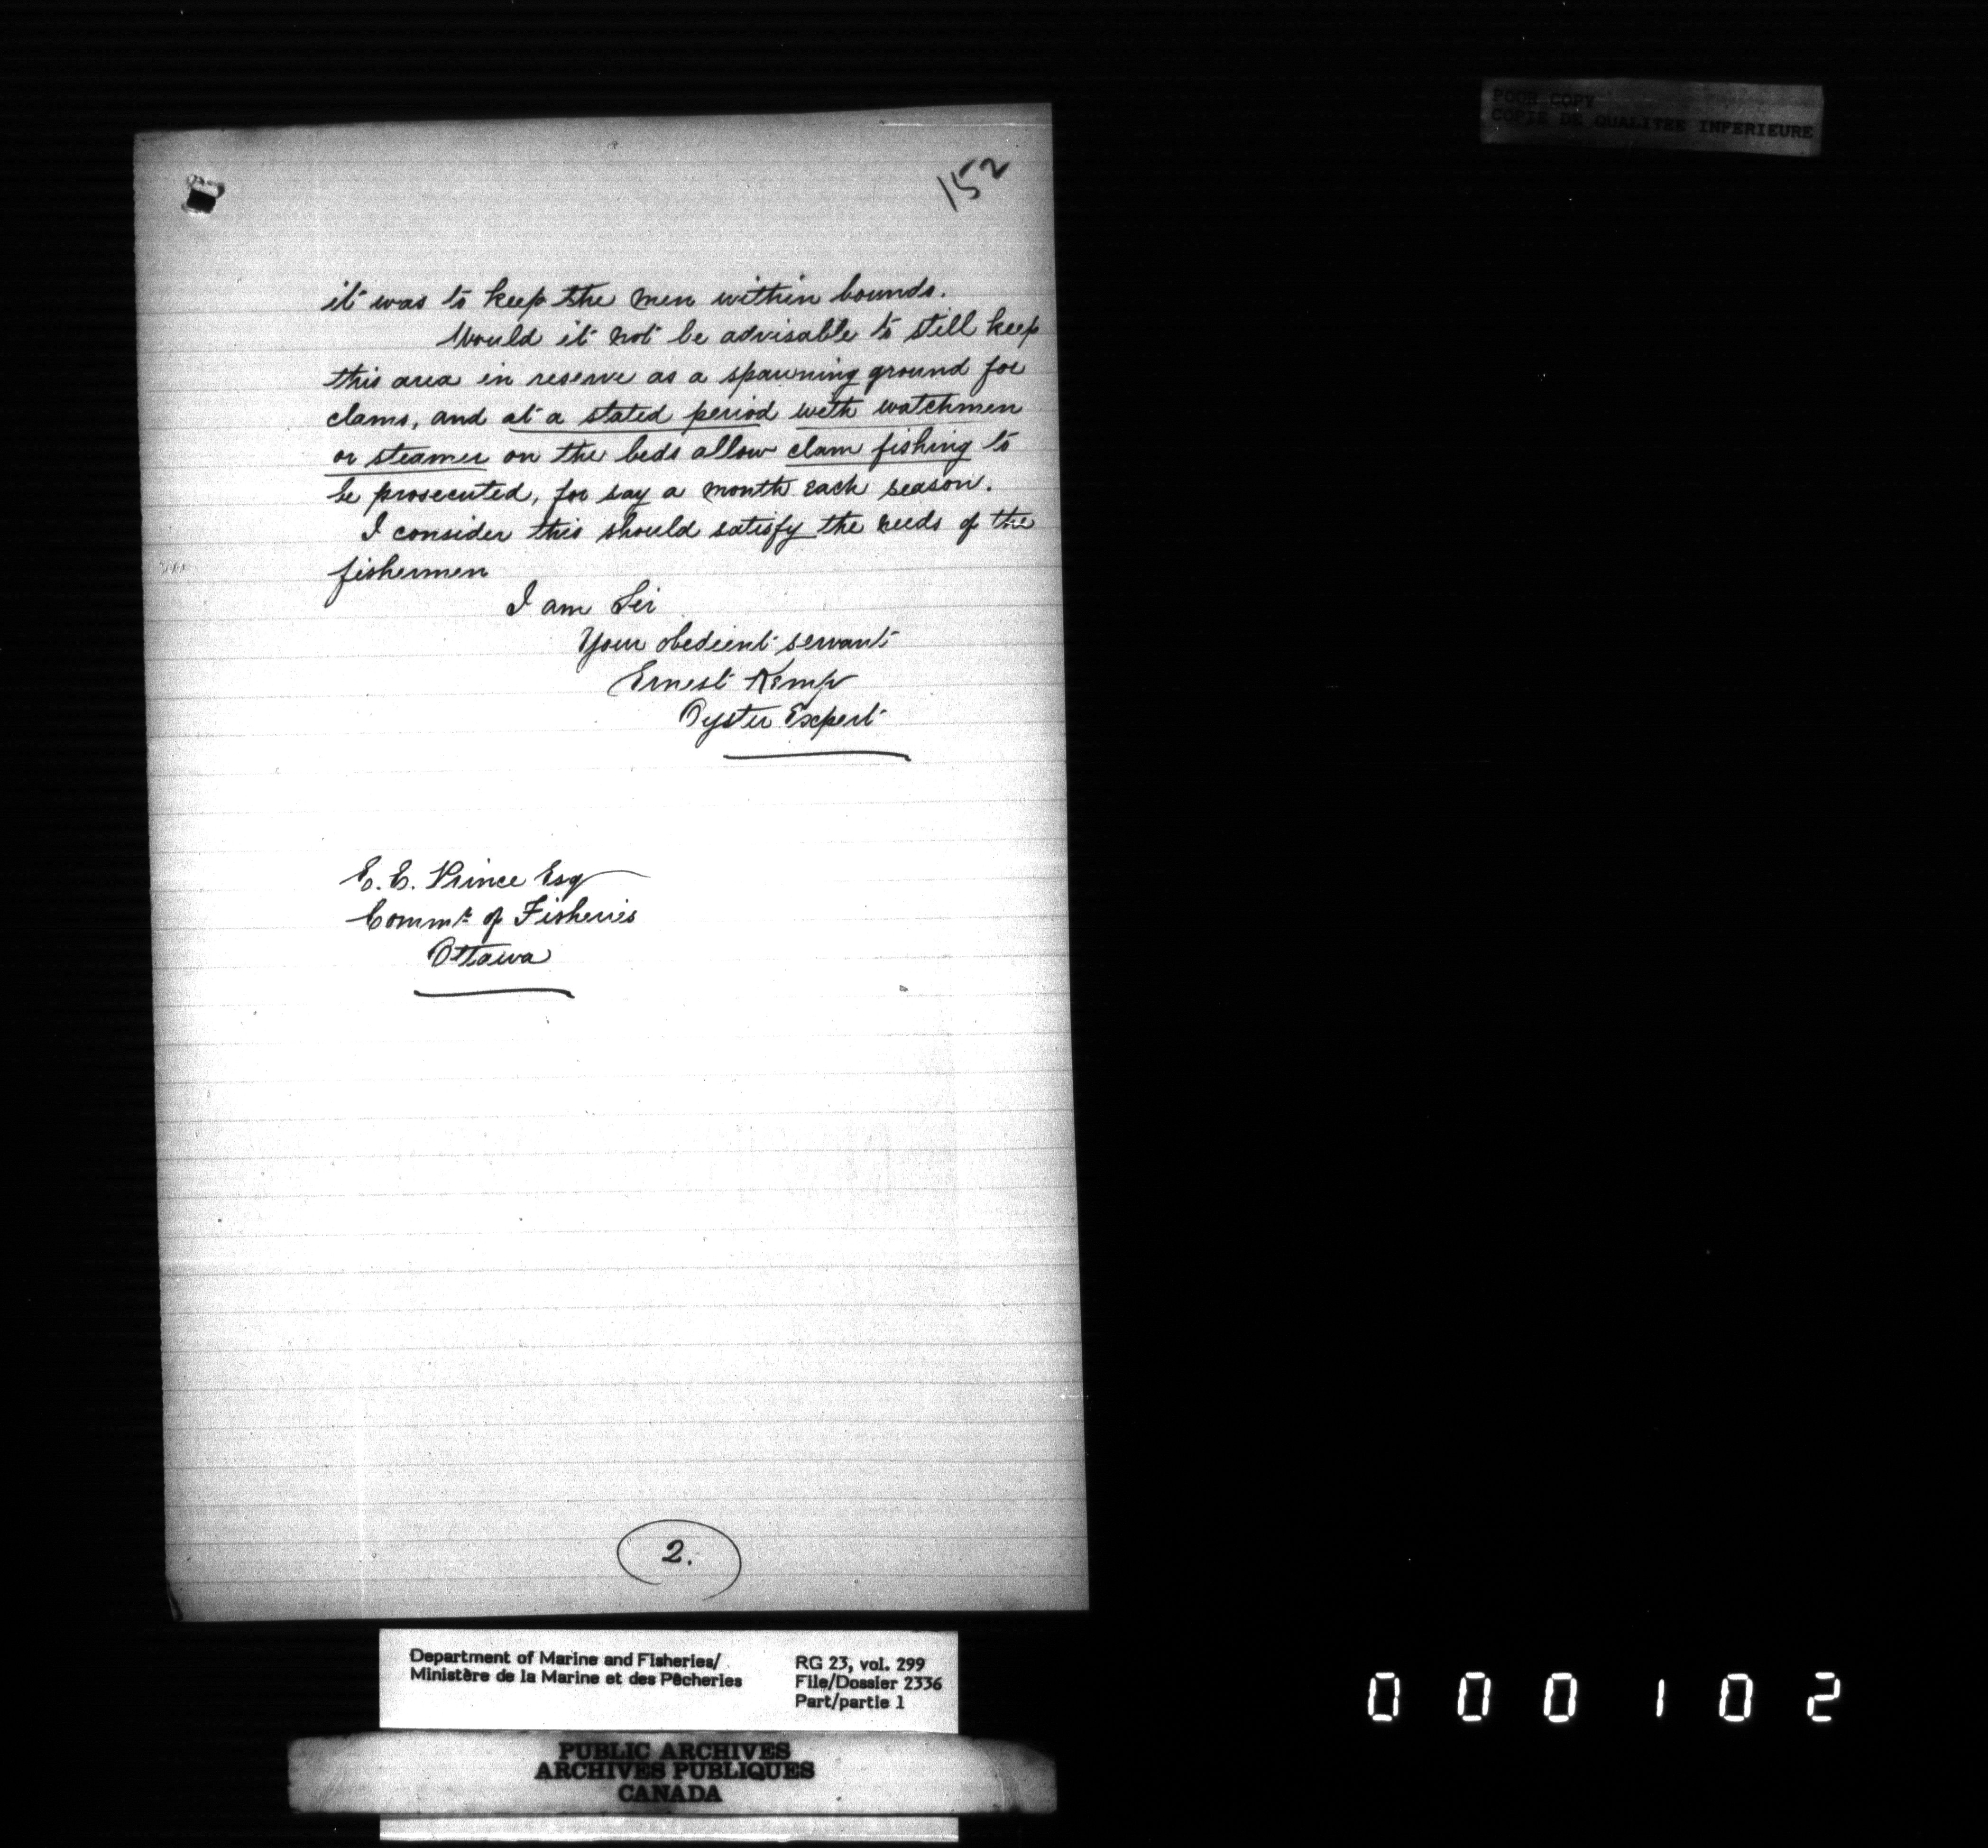 POOR COPY
COPIE DE QUALITEE INFERIEURE
152
it was to keep the men within bounds.
Would it not be advisable to still keep
this area in reserve as a spawning ground for
clams, and at a stated period with watchmen
or steamer on the beds allow clam fishing to
be prosecuted, for say a month each season.
I consider this should satisfy the needs of the
fishermen
I am Sir
Your obedient servant
Ernest Kemp
Oyster Expert
E. E. Prince Esq
Commr of Fisheries
Ottawa
2.
Department of Marine and Fisheries/
Ministère de la Marine et des Pêcheries
RG 23, vol. 299
File/Dossier 2336
Part/partie 1
PUBLIC ARCHIVES
ARCHIVES PUBLIQUES
CANADA
000102